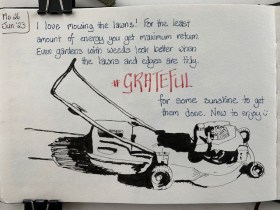 Mo 26
Jun '23
I love mowing the lawns! For the least
amount of energy you get maximum return.
Even gardens with weeds look better when
the lawns and edges are tidy.
#GRATEFUL
for some sunshine to get
them done. Now to enjoy